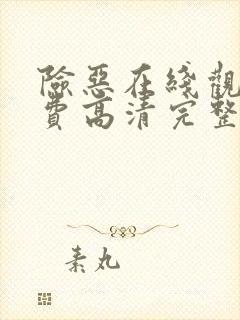 險惡在綫觀
費高清完整
素丸